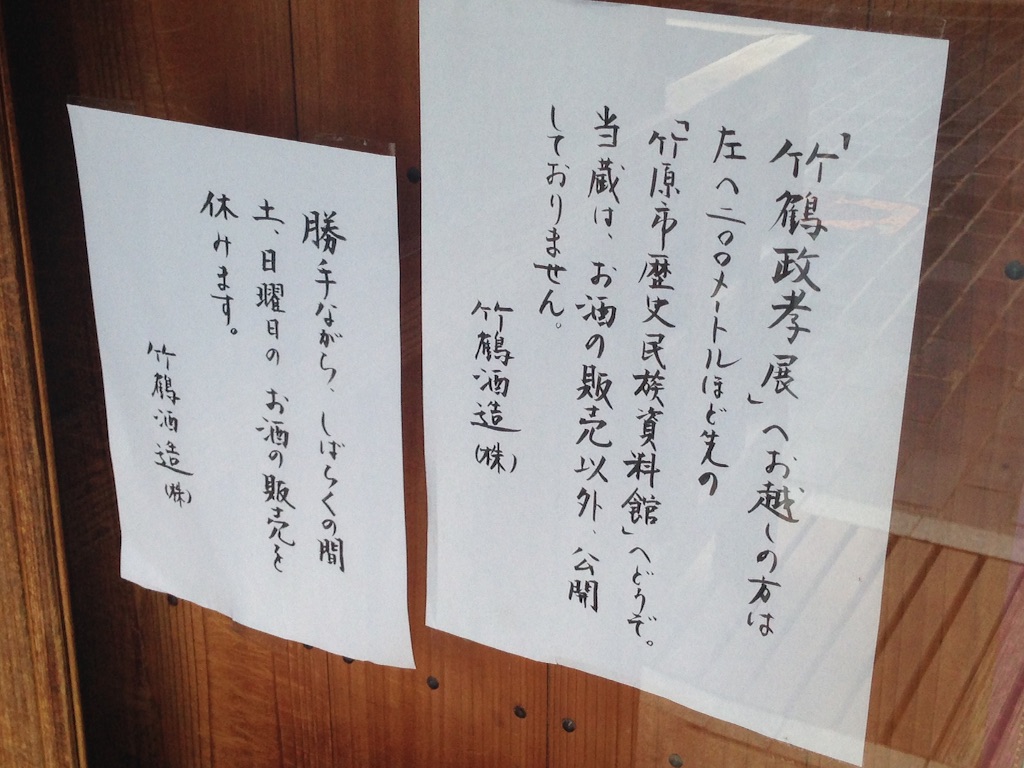 「竹鶴政孝展」へお越しの方は
左へ二〇〇メートルほど先の
「竹原市歴史民族資料館」へどうぞ。
当蔵は、お酒の販売以外、公開
しておりません。
竹鶴酒造(株)
勝手ながら、しばらくの間
土、日曜日の お酒の販売を
休みます。
竹鶴酒造(株)